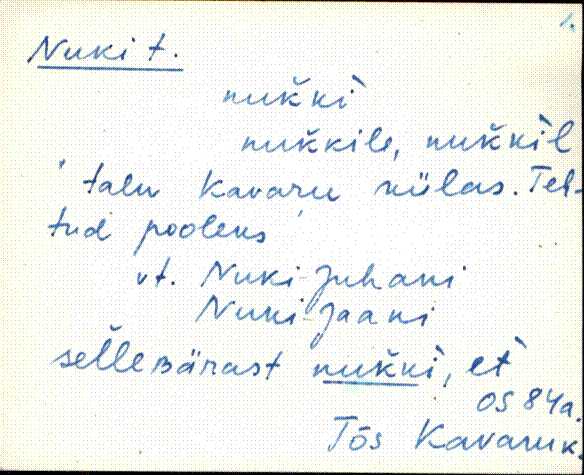 1.
Nuki t.
nuk̆kì
nuk̆kile, nuk̆kìl
' talu Kavaru külas. Teh-
tud pooleks '
vt. Nuki-Juhani
Nuki-Jaani
sel̆lepärast nuk̆kì, et̀
OS 84a.
Tõs Kavaru k.